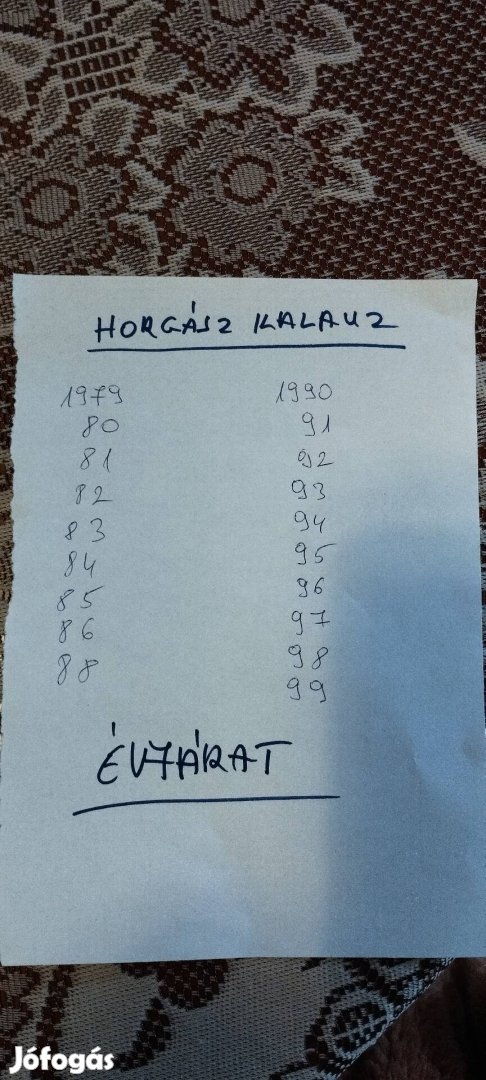 HORGÁSZ KALAUZ
1979
80
81
82
83
84
85
86
88
1990
91
92
93
94
95
96
97
98
99
ÉVJÁRAT
Jófogás